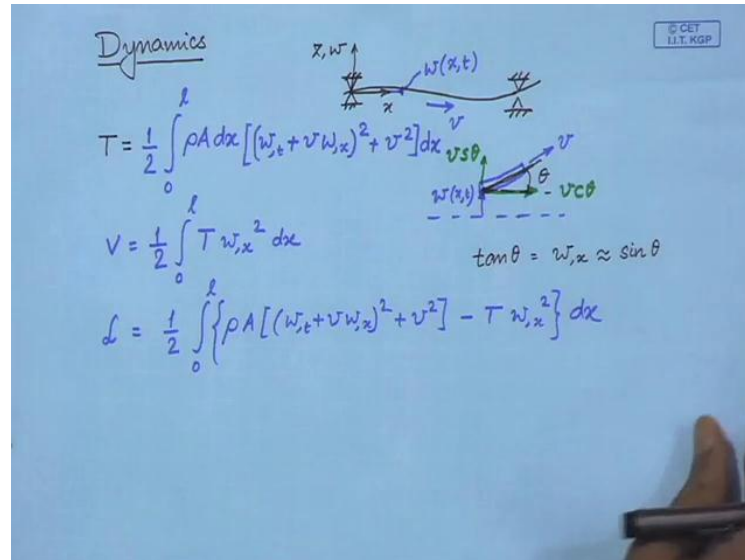 Dynamics
© CET
I.I.T. KGP
z, w
w(x,t)
x
v
T = 1/2 ∫₀ˡ ρA dx [(w,t + v w,x)² + v²] dx
v sθ
v
θ
w(x,t)
v cθ
V = 1/2 ∫₀ˡ T w,x² dx
tan θ = w,x ≈ sin θ
ℒ = 1/2 ∫₀ˡ {ρA[(w,t + v w,x)² + v²] − T w,x²} dx